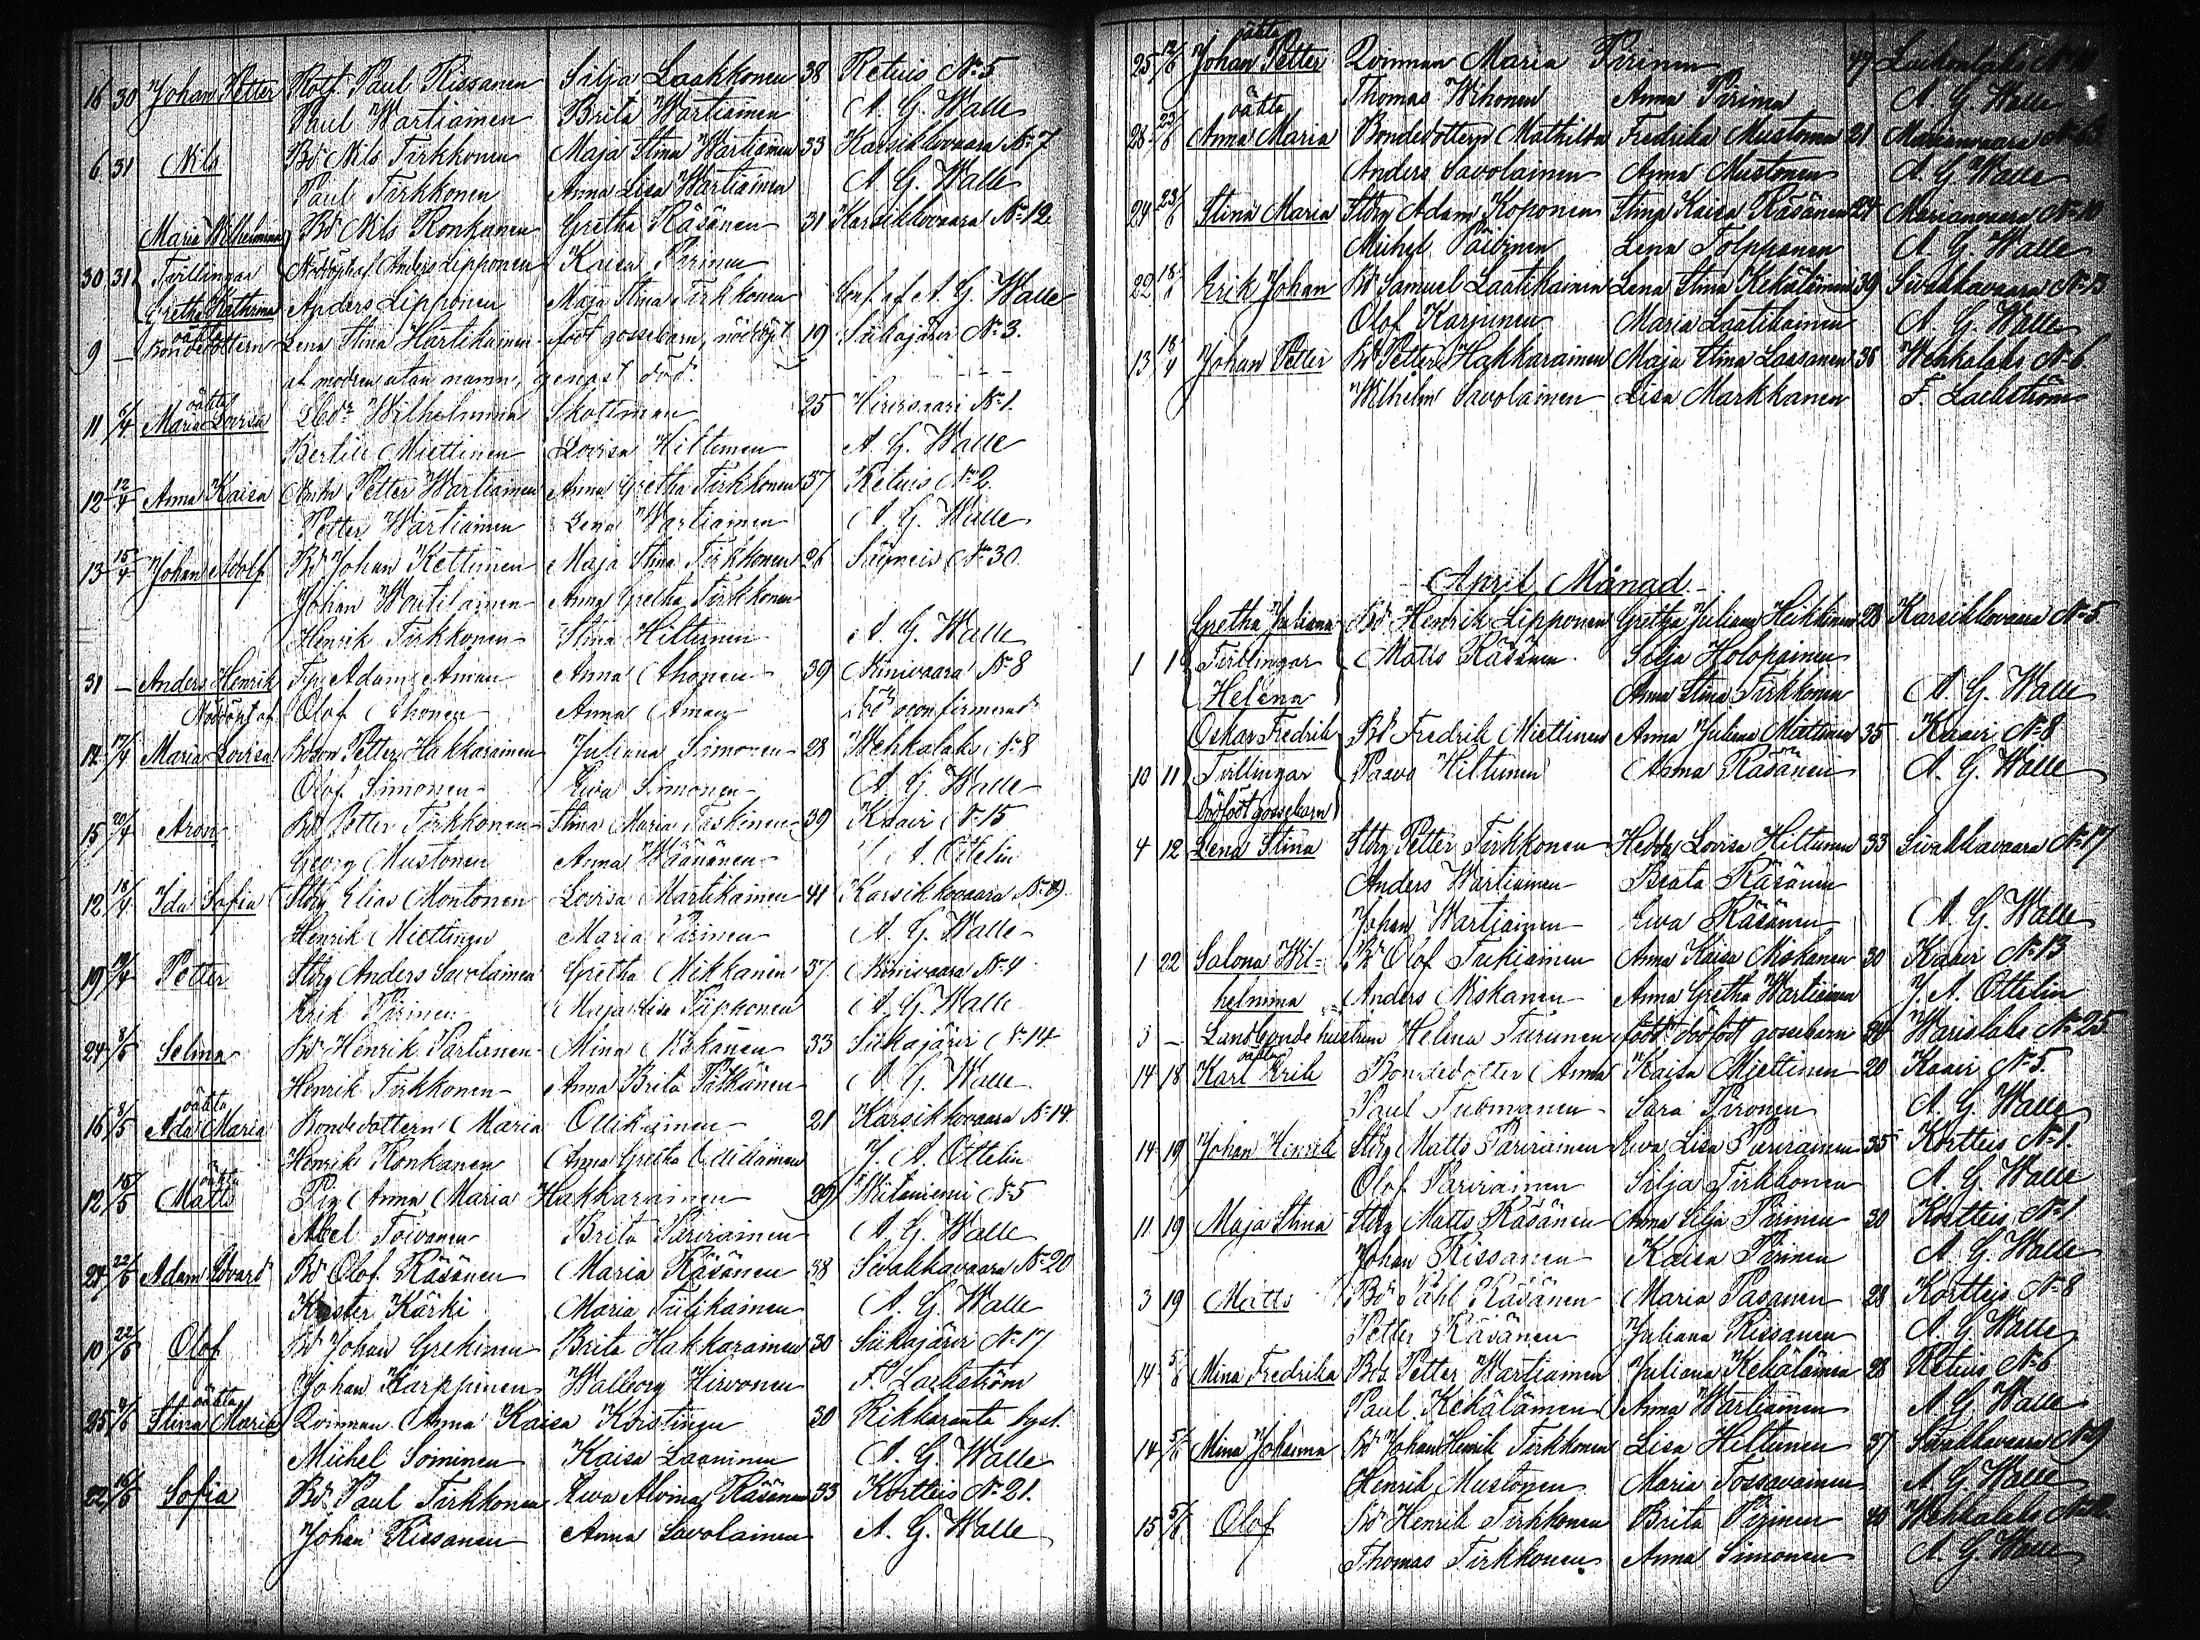 16 30 Johan Petter Rotf. Paul Rissanen Silja Laakkonen 38 Retuis No 5
Paul Wartiainen Brita Wartiainen A. G. Walle
6 31 Nils Bd Nils Tirkkonen Maja Stina Wartiainen 33 Karsikkovaara No 7
Paul Tirkkonen Anna Lisa Wartiainen A. G. Walle
Maria Wilhelmina Bd Nils Ronkanen Gretha Räsänen 31 Karsikkovaara No 12
30 31 Tvillingar Nöddöpt af Anders Lipponen Kaisa Pirinen
Gretha Kathrina Anders Lipponen Maja Stina Tirkkonen Conf. af A. G. Walle
9 — Bondedottern Lena Stina Hartikainen födt gossebarn, nöddöpt 19 Siikajärvi No 3.
af modren utan namn, genast död.
oäkta
11 Maria Lovisa Wilhelmina Skottman 25 Hirvisaari No 1.
Bertil Miettinen Lovisa Hiltunen A. G. Walle
12 12/4 Anna Kaisa Petter Wartiainen Anna Gretha Tirkkonen 37 Retuis No 2.
Petter Wartiainen Lena Wartiainen A. G. Walle
13 15/4 Johan Adolf Bd Johan Kettunen Maja Stina Tirkkonen 26 No 30.
Johan Woutilainen Anna Gretha Tirkkonen
Henrik Tirkkonen Stina Hiltunen A. G. Walle
31 — Anders Henrik Adam Aman Anna Ahonen 39 Niinivaara No 8
Nöddöpt af Olof Ahonen Anna Aman död oconfirmerad
12 17/4 Maria Lovisa Bdson Petter Hakkarainen Juliana Simonen 28 Wehkalaks No 8
Olof Simonen Ewa Simonen A. G. Walle
15 20/4 Aron Bd Petter Tirkkonen Stina Maria Taskinen 39 Kaavi No 15
Georg Mustonen Anna Wäänänen J. A. Ottelin
12 18/4 Ida Sofia Stbg Elias Montonen Lovisa Martikainen 41 Karsikkovaara No 19.
Henrik Miettinen Maria Pirinen A. G. Walle
19 19/4 Petter Stbg Anders Savolainen Gretha Mikkanen 37 Niinivaara No 4
Erik Pirinen Maja Lisa Piipponen A. G. Walle
24 3/5 Selma Bd Henrik Partanen Mina Niskanen 33 Siikajärvi No 14
Henrik Tirkkonen Anna Brita Pöllänen A. G. Walle
oäkta
16 3/5 Ada Maria Bondedottern Maria Ollikainen 21 Karsikkovaara No 14.
Henrik Ronkanen Anna Gretha J. A. Ottelin
oäkta
12 18/5 Matts Pig. Anna Maria Hakkarainen 29 Niitaniemi No 5
Abel Toivanen Brita Parviainen A. G. Walle
24 22/5 Adam Edvard Bd Olof Räsänen Maria Räsänen 38 Sivakkavaara No 20
Kaster Kärki Maria Tiilikainen A. G. Walle
10 22/5 Olof Bd Johan Grekinen Brita Hakkarainen 30 Siikajärvi No 17
Johan Karppinen Walborg Hirvonen F. Lackström
oäkta
25 Stina Maria Qvinnan Anna Kaisa Korstinen 30 Rikkaranta bysl.
Michel Soininen Kaisa Laaninen A. G. Walle
22 Sofia Bd Paul Tirkkonen Ewa Alvina Räsänen 33 Kortteis No 21.
Johan Rissanen Anna Savolainen A. G. Walle
oäkta
25 12/6 Johan Petter Qvinnan Maria Pirinen 47
Thomas Wihonen Anna Pirinen A. G. Walle
oäkta
28 23/6 Anna Maria Bondedottern Mathilda Fredrika Mustonen 21 Marianvaara
Anders Savolainen Anna Mustonen A. G. Walle
24 23/6 Stina Maria Stbg Adam Koponen Stina Kaisa Räsänen 24 Marianvaara No 10
Michel Päivinen Lena Tolppanen A. G. Walle
22 Erik Johan Bd Samuel Laatikainen Lena Stina Kekäläinen 39 Sivakkavaara No 13
Olof Karjunen Maria Laatikainen A. G. Walle
13 Johan Petter Bd Petter Hakkarainen Maja Stina Laasanen 38 Wehkalaks No 6
Wilhelm Savolainen Lisa Markkanen F. Lackström
April Månad.
Gretha Juliana Bd Henrik Lipponen Gretha Juliana Heikkinen 28 Karsikkovaara No 5
1 1 Tvillingar Matts Räsänen Silja Holopainen
Helena Anna Stina Tirkkonen A. G. Walle
Oskar Fredrik Bd Fredrik Miettinen Anna Juliana Miettinen 35 Kaavi No 8
10 11 Tvillingar Paavo Hiltunen Anna Räsänen A. G. Walle
Dödfödt gossebarn
4 12 Lena Stina Stbg Petter Tirkkonen Hedda Lovisa Hiltunen 33 Sivakkavaara No 17
Anders Wartiainen Beata Räsänen
Johan Wartiainen Ewa Räsänen A. G. Walle
1 22 Salona Wil- Bd Olof Tuikiainen Anna Kaisa Niskanen 30 Kaavi No 13
helmina Anders Niskanen Anna Gretha Wartiainen J. A. Ottelin
3 — Landbonde hustrun Helena Turunen född dödfödt gossebarn 24 Warislaks No 25
oäkta
14 18 Karl Erik Bondedotter Anna Kaisa Miettinen 20 Kaavi No 5.
Paul Tuomanen Sara Pironen A. G. Walle
14 19 Johan Henrik Stbg Matts Parviainen Ewa Lisa Parviainen 35 Kortteis No 1.
Olof Parviainen Silja Tirkkonen A. G. Walle
11 19 Maja Stina Stbg Matts Räsänen Anna Silja Pirinen 30 Kortteis No 1
Johan Rissanen Kaisa Pirinen A. G. Walle
3 19 Matts Bd Påhl Räsänen Maria Pasanen 28 Kortteis No 8
Petter Räsänen Juliana Rissanen A. G. Walle
14 5/6 Mina Fredrika Bds Petter Wartiainen Juliana Kekäläinen 28 Retuis No 6
Paul Kekäläinen Anna Wartiainen A. G. Walle
14 5/6 Mina Johanna Bd Johan Henrik Tirkkonen Lisa Hiltunen 37 Sivakkavaara No 9
Henrik Mustonen Maria Tossavainen A. G. Walle
15 5/6 Olof Bd Henrik Tirkkonen Brita Pirinen 40 Wehkalaks
Thomas Tirkkonen Anna Simonen A. G. Walle